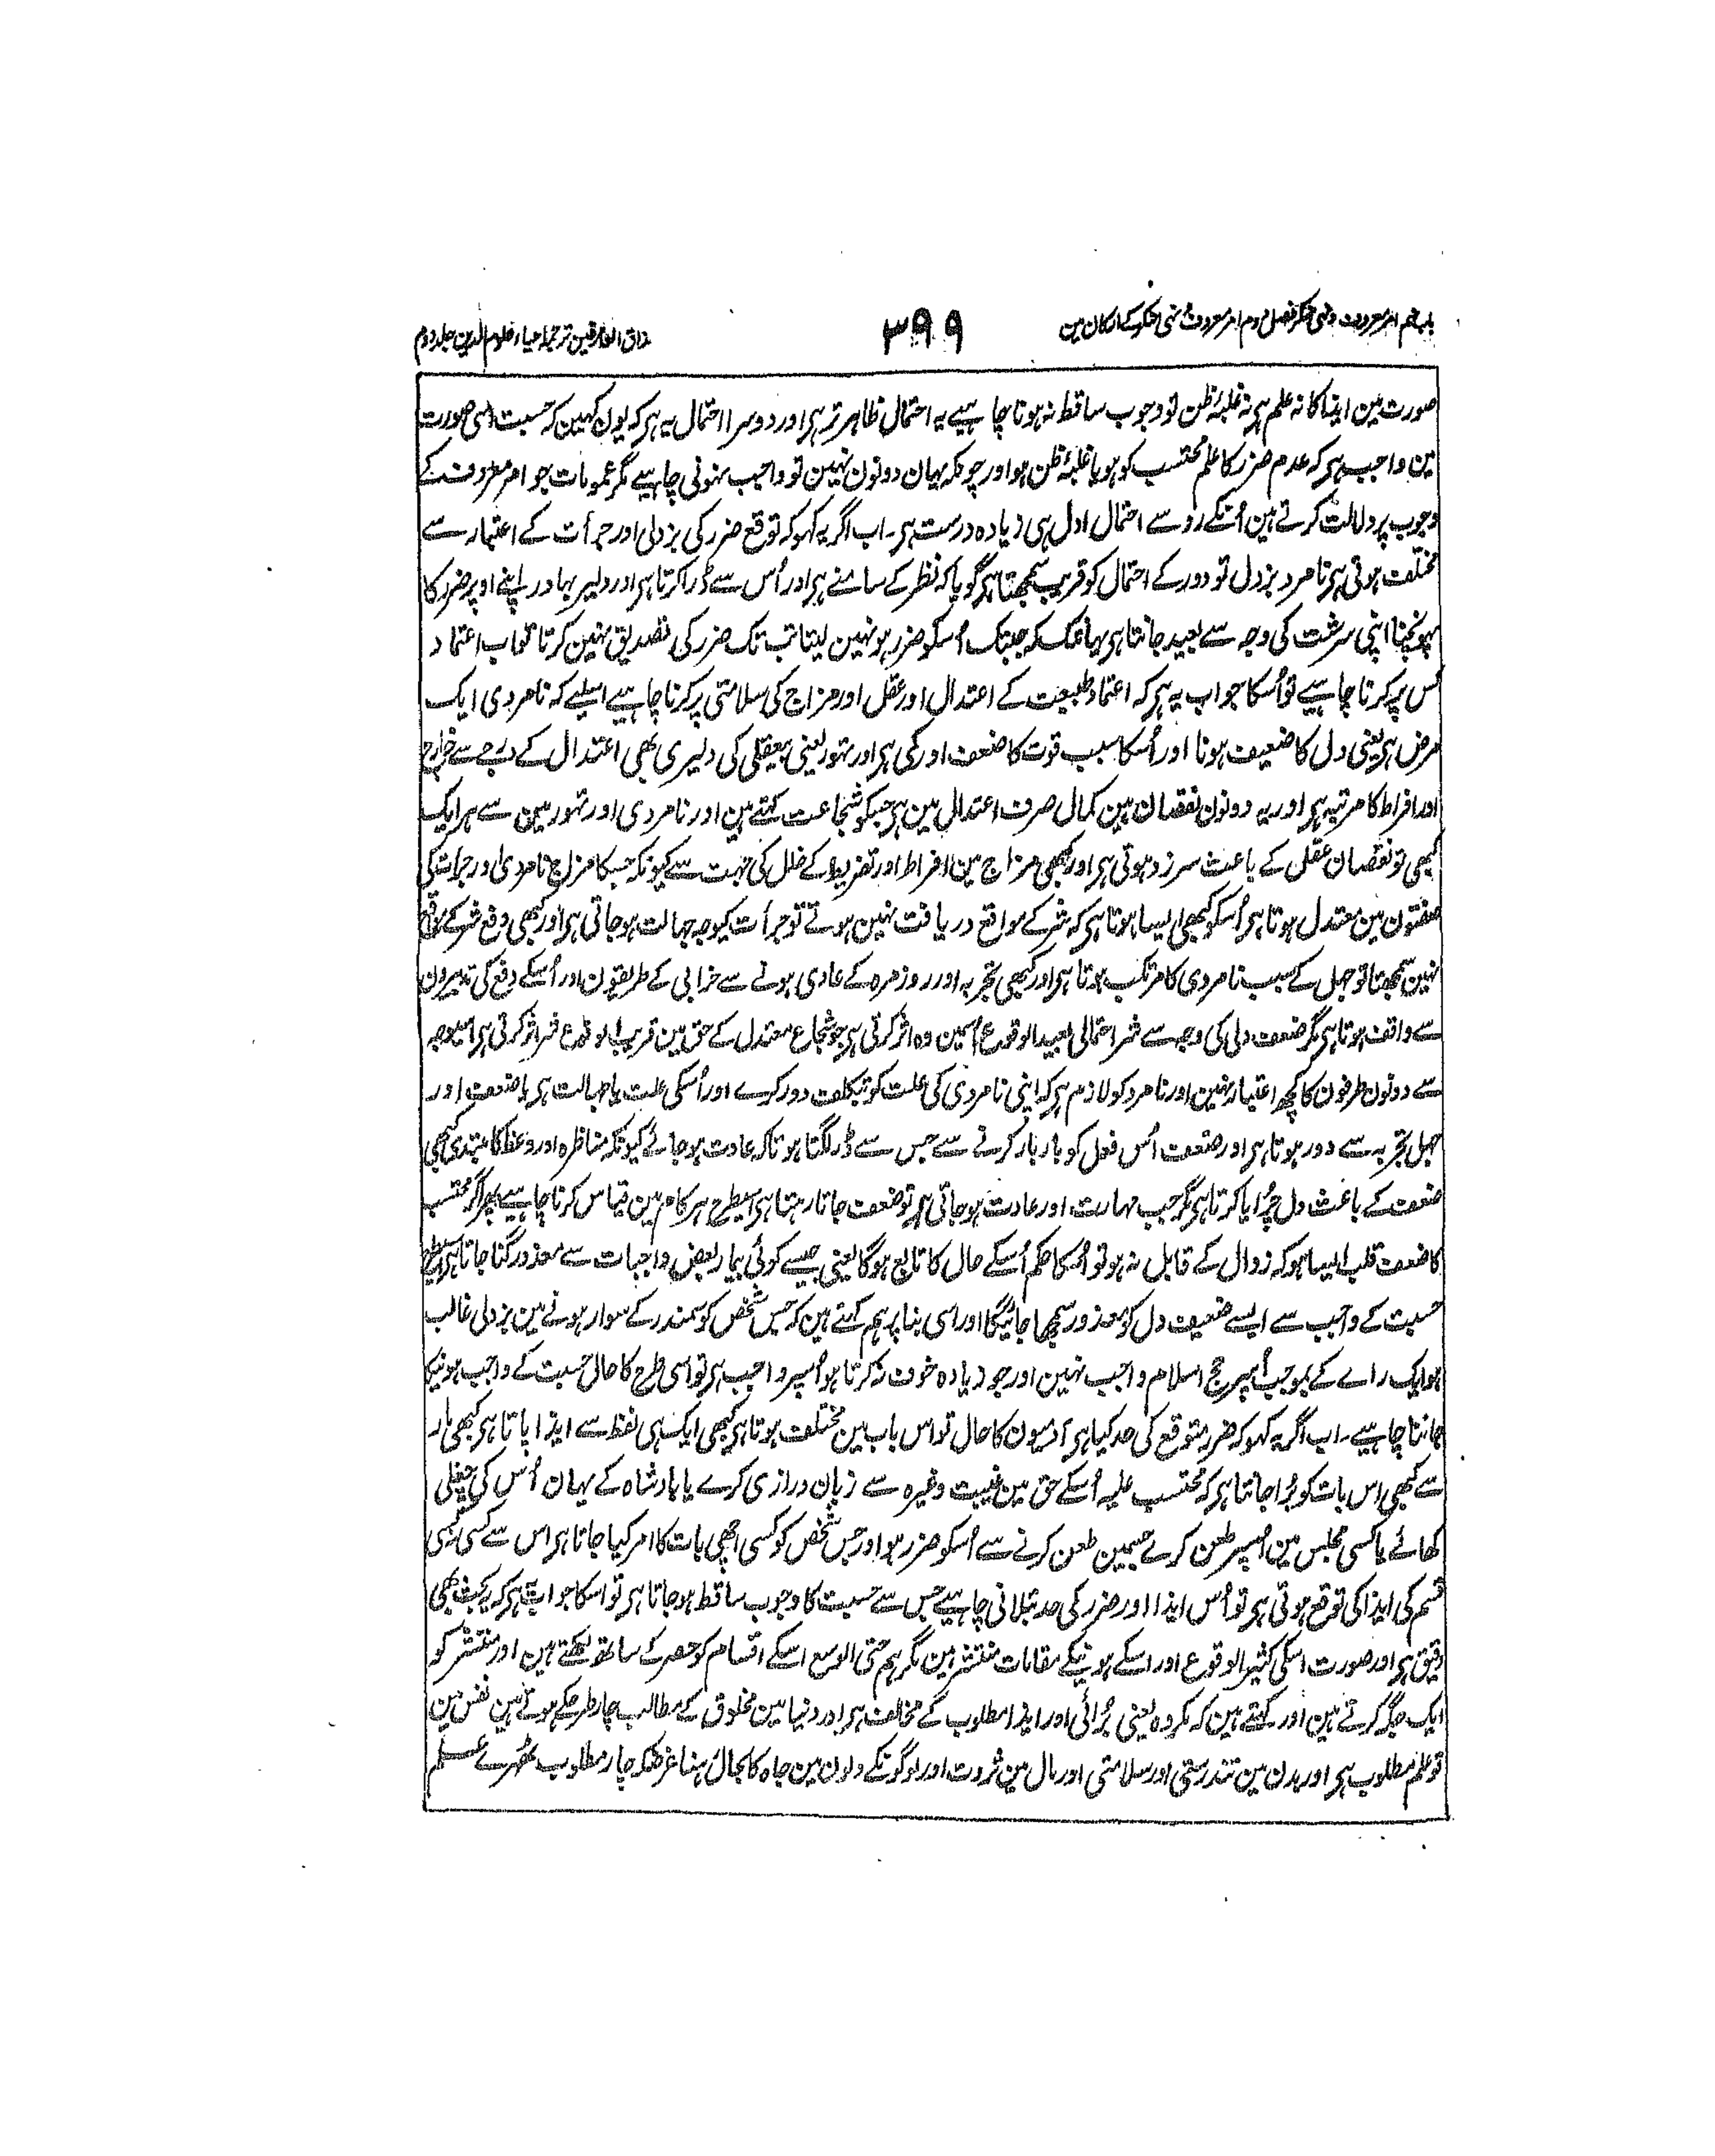 باب نہم امر معروف ونہی منکر فصل دوم امر معروف ونہی منکر کے ارکان مین
۳۹۹
مذاق العارفین ترجمہ احیاء علوم الدین جلد دوم
صورت مین ایذا کا نہ علم ہی نہ غلبۂ ظن تو وجوب ساقط نہ ہونا چاہیے یہ احتمال ظاہر تر ہی اور دوسرا احتمال یہ ہی کہ یون کہین کہ حسبت اسی صورت
مین واجب ہی کہ عدم ضرر کا علم محتسب کو ہو یا غلبۂ ظن ہو اور چونکہ یہان دونون نہین تو واجب نہونی چاہیے مگر عمومات جو امر معروف کے
وجوب پر دلالت کرتے ہین اُنکے رو سے احتمال اول ہی زیادہ درست ہی۔ اب اگر یہ کہو کہ توقع ضرر کی بزدلی اور جرأت کے اعتبار سے
مختلف ہوتی ہی نامرد بزدل تو دور کے احتمال کو قریب سمجھتا ہی گویا کہ نظر کے سامنے ہی اور اُس سے ڈرا کرتا ہی اور دلیر بہادر اپنے اوپر ضرر کا
پہونچنا اپنی سرشت کی وجہ سے بعید جانتا ہی یہانتک کہ جبتک اُسکو ضرر ہو نہین لیتا تب تک ضرر کی تصدیق نہین کرتا تو اب اعتماد
کس پر کرنا چاہیے تو اُسکا جواب یہ ہی کہ اعتماد طبیعت کے اعتدال اور عقل اور مزاج کی سلامتی پر کرنا چاہیے اسلیے کہ نامردی ایک
مرض ہی یعنی دل کا ضعیف ہونا اور اُسکا سبب قوت کا ضعف اور کمی ہی اور تہور یعنی بیعقلی کی دلیری بھی اعتدال کے درجے سے خارج
اور افراط کا مرتبہ ہی اور یہ دونون نقصان ہین کمال صرف اعتدال مین ہی جسکو شجاعت کہتے ہین اور نامردی اور تہور مین سے ہر ایک
کبھی تو نقصان عقل کے باعث سرزد ہوتی ہی اور کبھی مزاج مین افراط اور تفریط کے خلل کی جہت سے کیونکہ جسکا مزاج نامردی اور جرات کی
صفتون مین معتدل ہوتا ہی اُسکو کبھی ایسا ہوتا ہی کہ شر کے مواقع دریافت نہین ہوتے تو جرأت کیوجہ جہالت ہو جاتی ہی اور کبھی دفع شر کے موقع
نہین سمجھتا تو جہل کے سبب نامردی کا مرتکب ہوتا ہی اور کبھی تجربہ اور روزمرہ کے عادی ہونے سے خرابی کے طریقون اور اُسکے دفع کی تدبیرون
سے واقف ہوتا ہی مگر ضعف دلی کی وجہ سے شر احتمالی بعید الوقوع اُسمین وہ اثر کرتی ہی جو شجاع معتدل کے حق مین قریب الوقوع شر اثر کرتی ہی اسیوجہ
سے دونون طرفون کا کچھ اعتبار نہین اور نامرد کو لازم ہی کہ اپنی نامردی کی علت کو بتکلف دور کرے اور اُسکی علت یا جہالت ہی یا ضعف اور
جہل تجربہ سے دور ہوتا ہی اور ضعف اُس فعل کو بار بار کرنے سے جس سے ڈر لگتا ہو تاکہ عادت ہو جائے کیونکہ مناظرہ اور وعظ کا مبتدی کبھی
ضعف کے باعث دل چُرایا کرتا ہی مگر جب مہارت اور عادت ہو جاتی ہی تو ضعف جاتا رہتا ہی اسیطرح ہر کام مین قیاس کرنا چاہیے پھر اگر محتسب
کا ضعف قلب ایسا ہو کہ زوال کے قابل نہ ہو تو اُسکا حکم اُسکے حال کا تابع ہوگا یعنی جیسے کوئی بیمار بعض واجبات سے معذور گنا جاتا ہی اسیطرح
حسبت کے واجب سے ایسے ضعیف دل کو معذور سمجھا جائیگا اور اسی بنا پر ہم کہتے ہین کہ جس شخص کو سمندر کے سوار ہونے مین بزدلی غالب
ہو ایک راے کے بموجب اُسپر حج اسلام واجب نہین اور جو زیادہ خوف نہ کرتا ہو اُسپر واجب ہی تو اسی طرح کا حال حسبت کے واجب ہونیکا
جاننا چاہیے۔ اب اگر یہ کہو کہ ضرر متوقع کی حد کیا ہی آدمیون کا حال تو اس باب مین مختلف ہوتا ہی کبھی ایک ہی لفظ سے ایذا پاتا ہی کبھی مار
سے کبھی اس بات کو بُرا جانتا ہی کہ محتسب علیہ اُسکے حق مین غیبت وغیرہ سے زبان درازی کرے یا بادشاہ کے یہان اُس کی چغلی
کھائے یا کسی مجلس مین اُسپر طعن کرے جسمین طعن کرنے سے اُسکو ضرر ہو اور جس شخص کو کسی اچھی بات کا امر کیا جاتا ہی اس سے کسی نہ کسی
قسم کی ایذا کی توقع ہوتی ہی تو اُس ایذا اور ضرر کی حد بتلانی چاہیے جس سے حسبت کا وجوب ساقط ہو جاتا ہی تو اسکا جواب یہ ہی کہ یہ بحث بھی
دقیق ہی اور صورت اسکی کثیر الوقوع اور اسکے ہونیکے مقامات منتشر ہین مگر ہم حتی الوسع اسکے اقسام کو حصر کے ساتھ لکھتے ہین اور منتشر کو
ایک جگہ کرتے ہین اور کہتے ہین کہ مکروہ یعنی بُرائی اور ایذا مطلوب کے مخالف ہی اور دنیا مین مخلوق کے مطالب چار طرح کے ہوتے ہین نفس مین
تو علم مطلوب ہی اور بدن مین تندرستی اور سلامتی اور مال مین ثروت اور لوگونکے دلون مین جاہ کا بحال رہنا غرضکہ چار مطلوب ٹھہرے علم